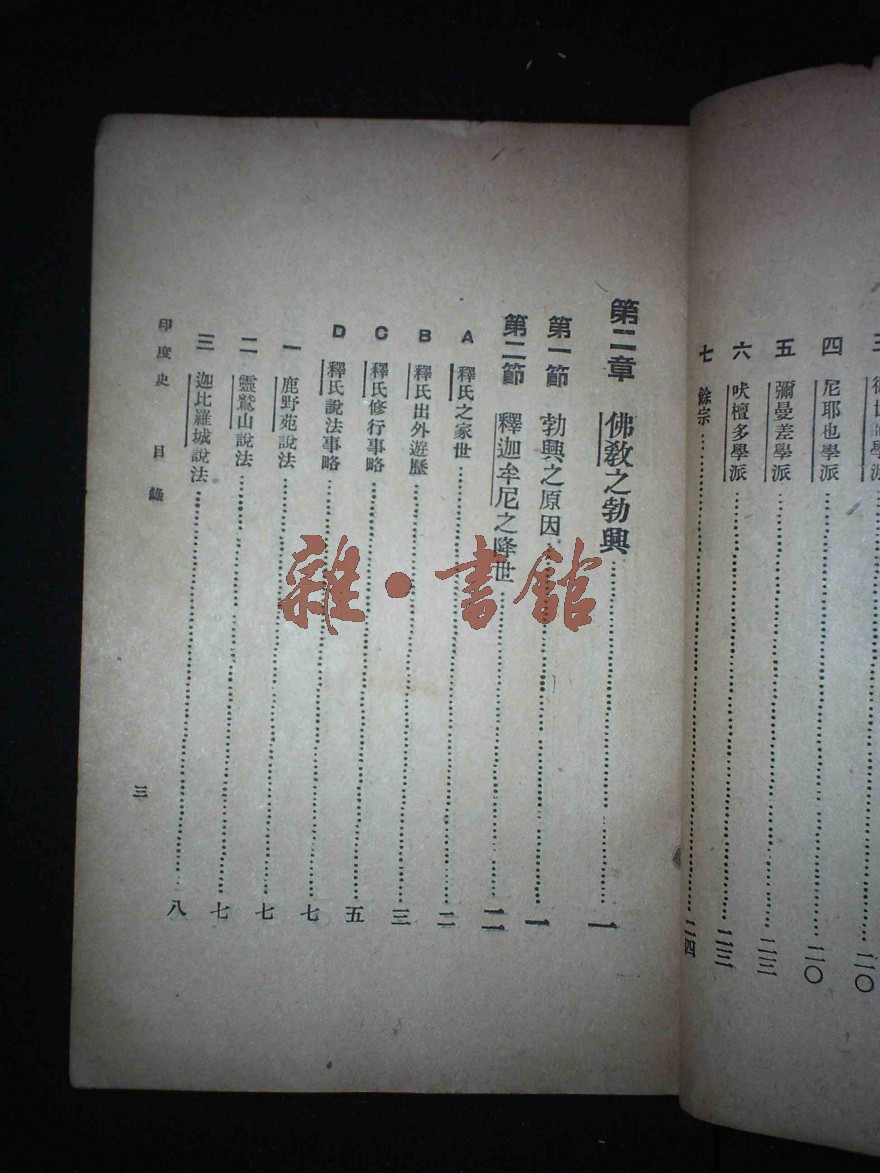 四 尼耶也學派 二〇
五 彌曼差學派 二三
六 吠檀多學派 二三
七 餘宗 二四
第二章 佛敎之勃興 一
第一節 勃興之原因 一
第二節 釋迦牟尼之降世 二
A 釋氏之家世 二
B 釋氏出外遊歷 三
C 釋氏修行事略 五
D 釋氏說法事略 七
一 鹿野苑說法 七
二 靈鷲山說法 七
三 迦比羅城說法 八
印度史 目錄
三
雜·書館